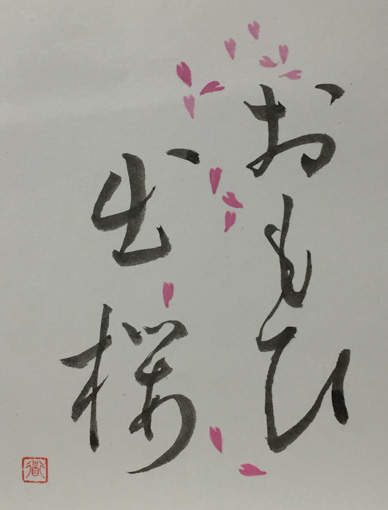 おもひ
出桜